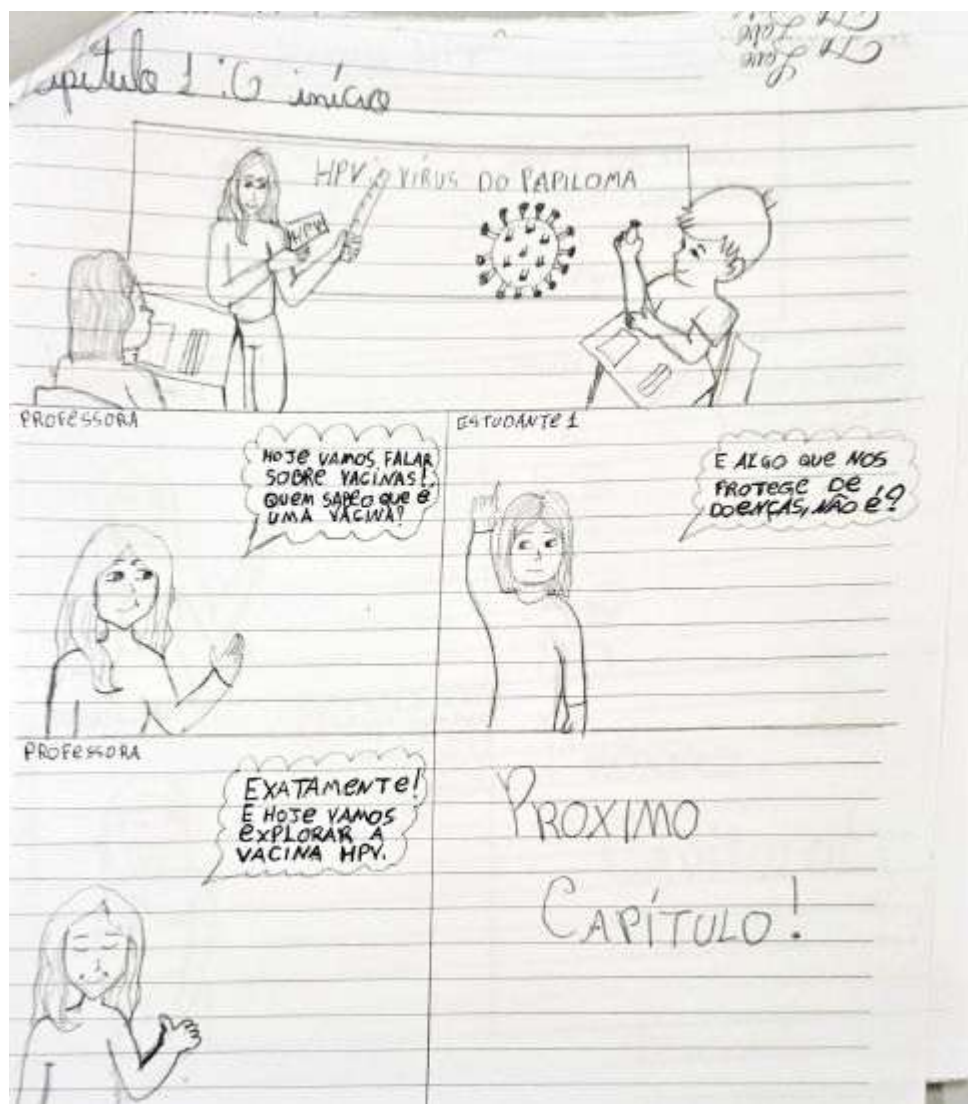 Capítulo 1: O início
HPV: O VÍRUS DO PAPILOMA
HPV
PROFESSORA
HOJE VAMOS FALAR
SOBRE VACINAS!
QUEM SABE O QUE É
UMA VACINA?
ESTUDANTE 1
E ALGO QUE NOS
PROTEGE DE
DOENÇAS, NÃO É?
PROFESSORA
EXATAMENTE!
E HOJE VAMOS
EXPLORAR A
VACINA HPV.
PROXIMO
CAPÍTULO!